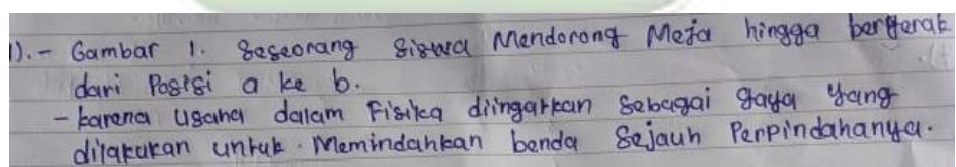 1). - Gambar 1. Seseorang Siswa Mendorong Meja hingga bergerak
dari Posisi a ke b.
- karena usaha dalam Fisika diingarkan Sebagai gaya yang
dilakukan untuk. Memindahkan benda Sejauh Perpindahanya.